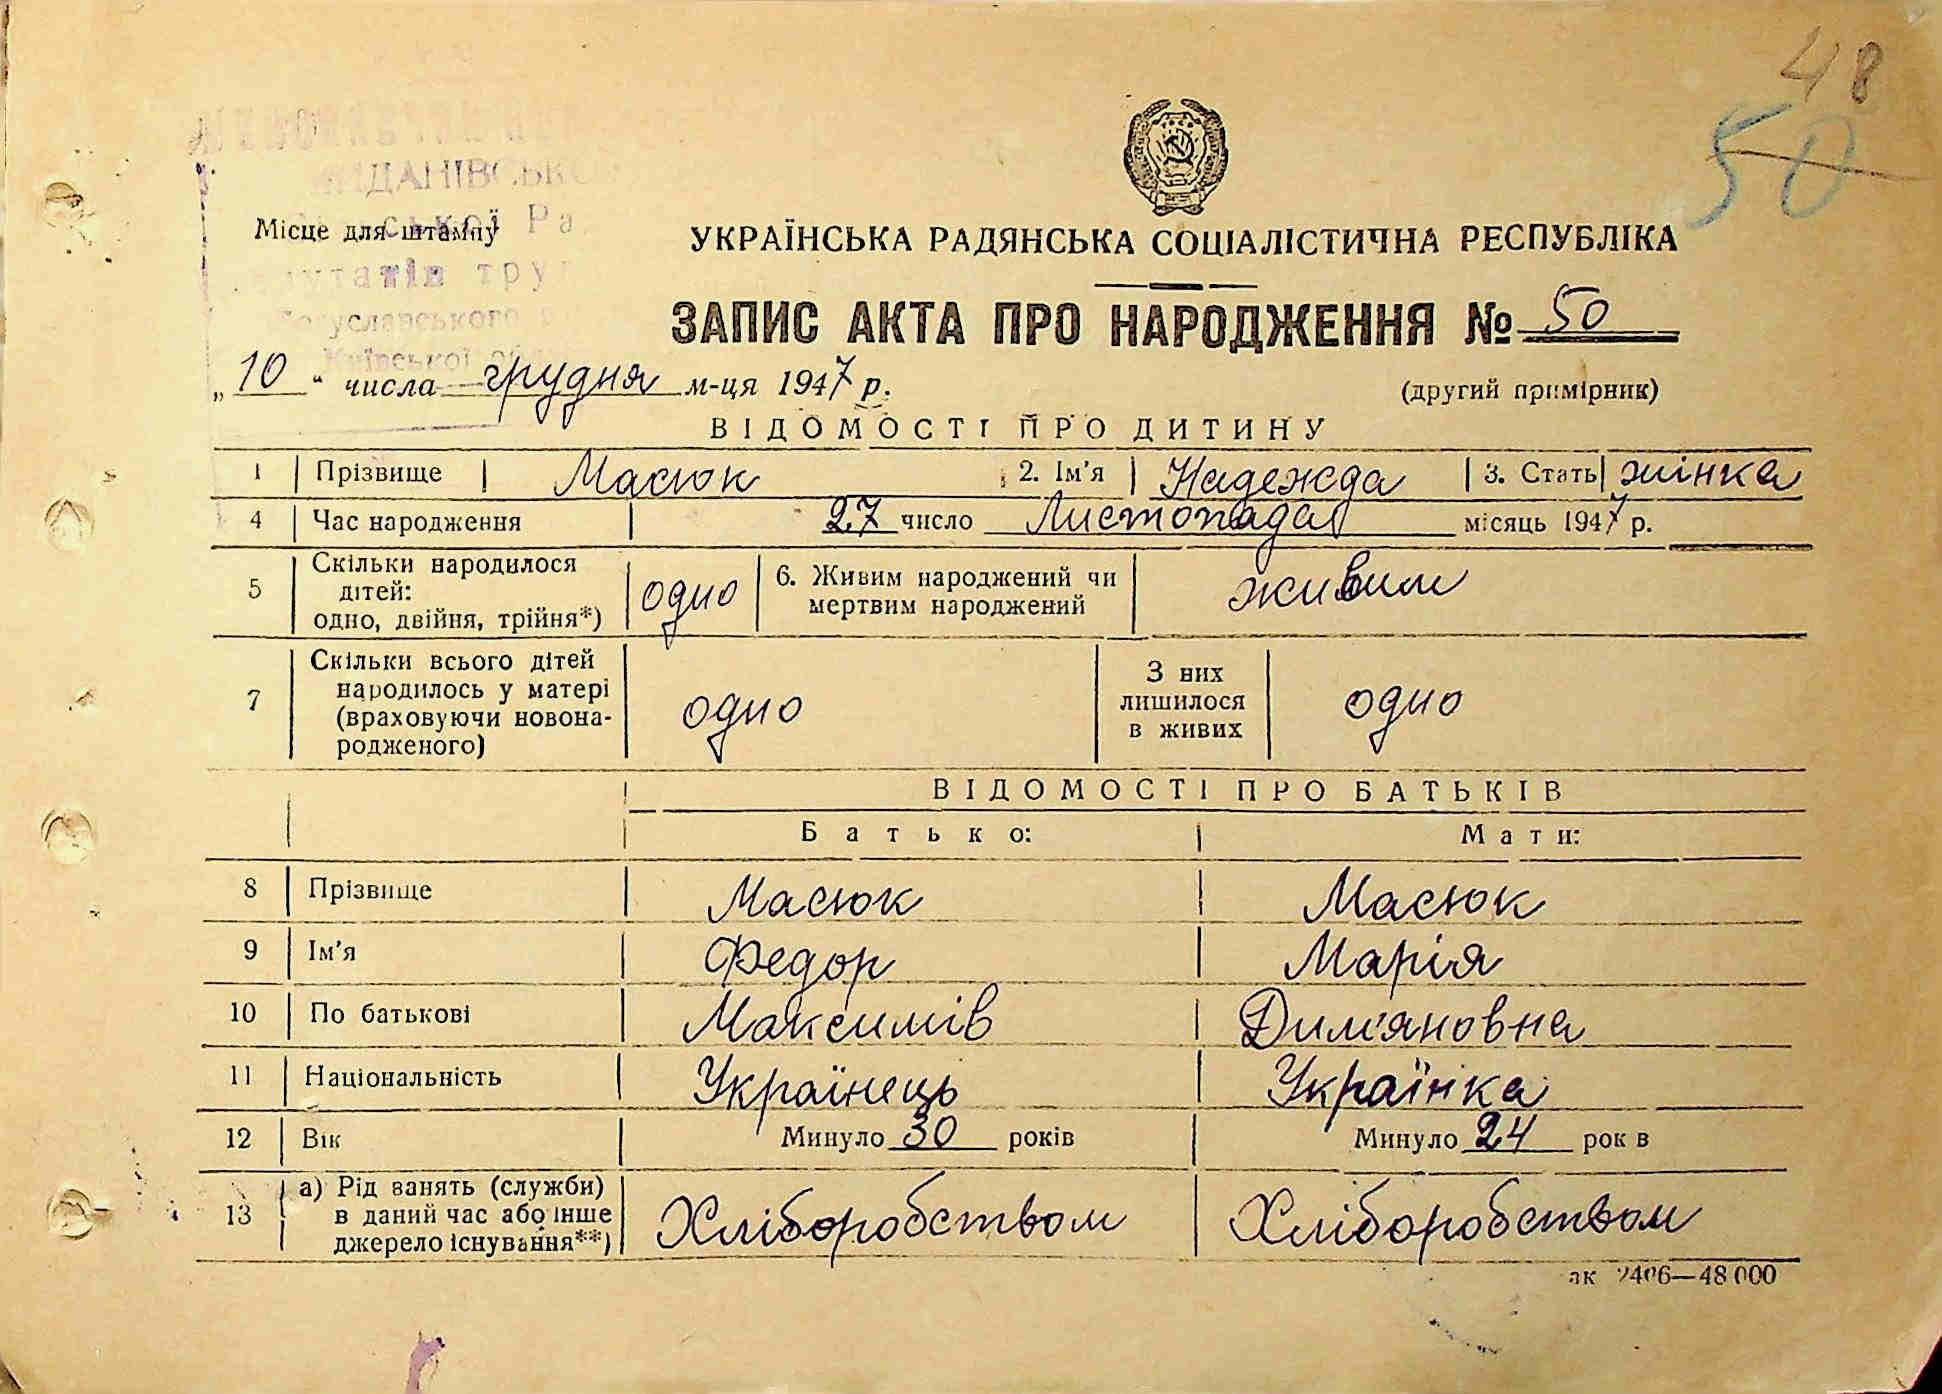 48
50
Місце для штампу
УКРАЇНСЬКА РАДЯНСЬКА СОЦІАЛІСТИЧНА РЕСПУБЛІКА
ЗАПИС АКТА ПРО НАРОДЖЕННЯ № 50
„10" числа грудня м-ця 1947 р.
(другий примірник)
ВІДОМОСТІ ПРО ДИТИНУ
1 Прізвище Масюк 2. Ім'я Надежда 3. Стать жінка
4 Час народження 27 число Листопада місяць 1947 р.
5 Скільки народилося дітей: одно, двійня, трійня*) одно 6. Живим народжений чи мертвим народжений живим
7 Скільки всього дітей народилось у матері (враховуючи новонародженого) одно З них лишилося в живих одно
ВІДОМОСТІ ПРО БАТЬКІВ
Батько: Мати:
8 Прізвище Масюк Масюк
9 Ім'я Федор Марія
10 По батькові Максимів Дим'яновна
11 Національність Українець Українка
12 Вік Минуло 30 років Минуло 24 рок в
13 а) Рід занять (служби) в даний час або інше джерело існування**) Хліборобством Хліборобством
2406—48000